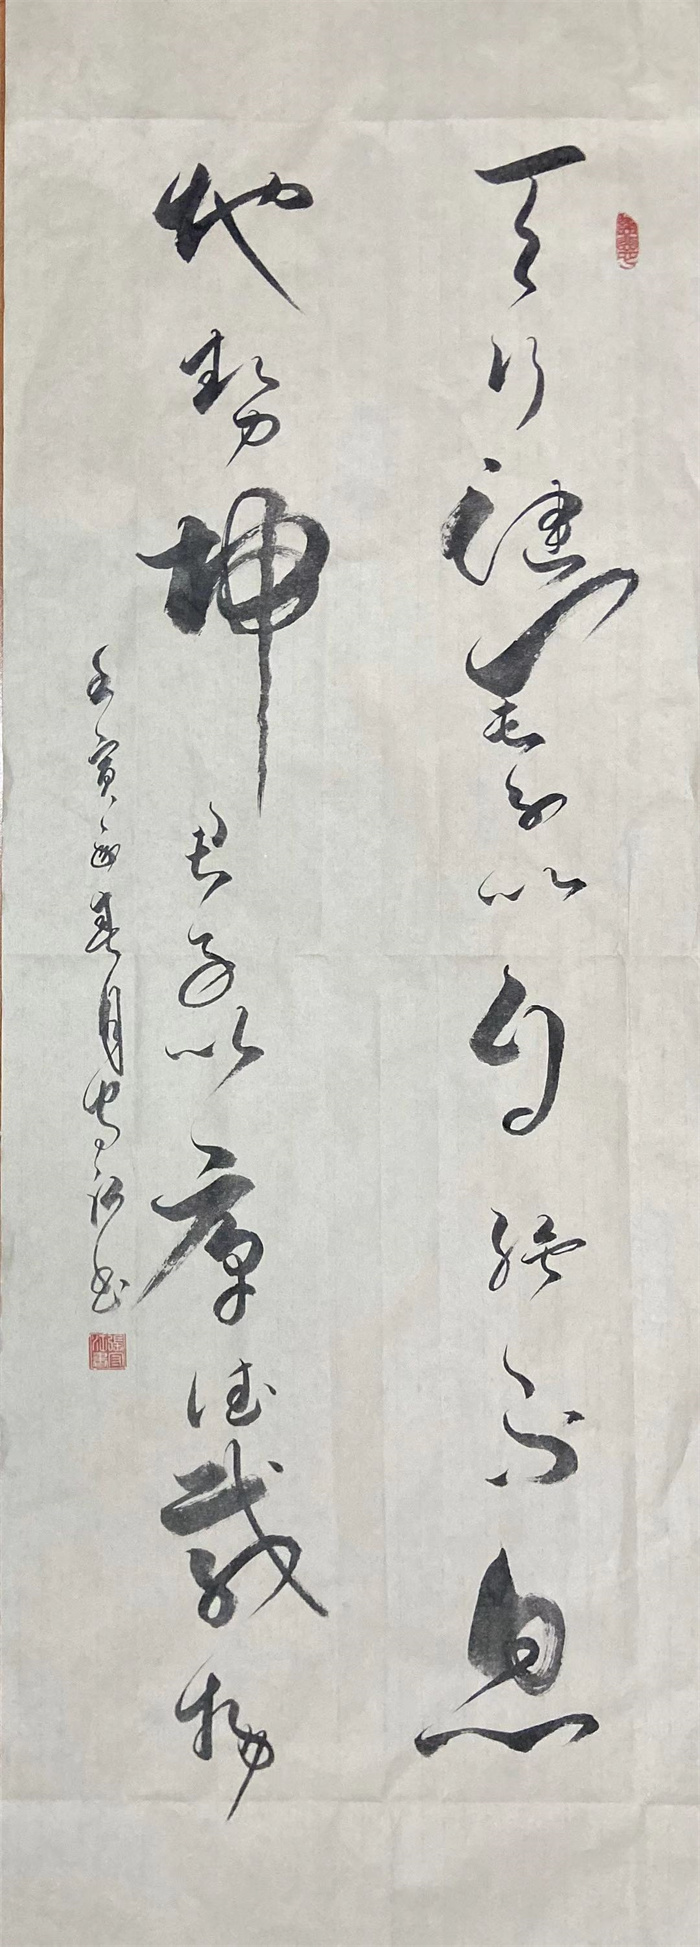 天行健君子以自强不息
地势坤君子以厚德载物
壬寅年春月守江书